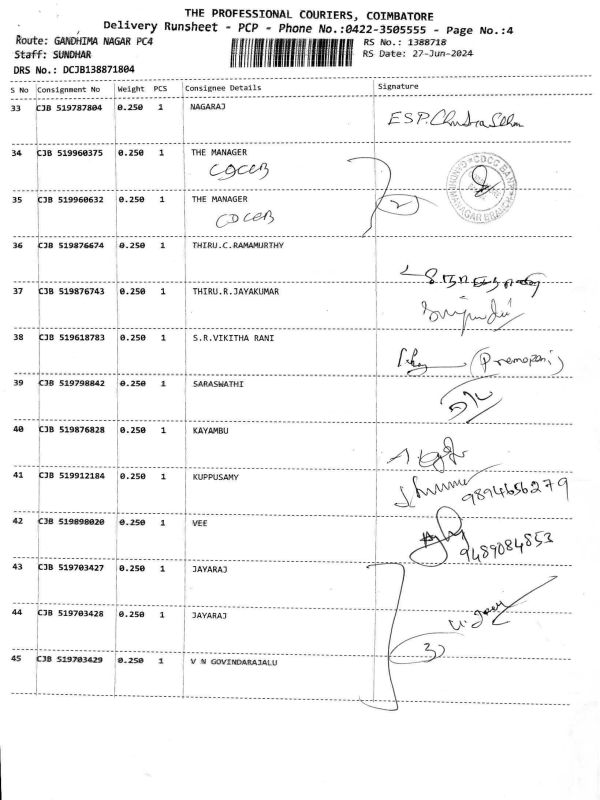 THE PROFESSIONAL COURIERS, COIMBATORE
Delivery Runsheet - PCP - Phone No.:0422-3505555 - Page No.:4
Route: GANDHIMA NAGAR PC4
RS No.: 1388718
Staff: SUNDHAR
RS Date: 27-Jun-2024
DRS No.: DCJB138871804
S No Consignment No Weight PCS Consignee Details Signature
33 CJB 519787804 0.250 1 NAGARAJ
34 CJB 519960375 0.250 1 THE MANAGER
CDCCB
35 CJB 519960632 0.250 1 THE MANAGER
CDCCB
2
36 CJB 519876674 0.250 1 THIRU.C.RAMAMURTHY
37 CJB 519876743 0.250 1 THIRU.R.JAYAKUMAR
38 CJB 519618783 0.250 1 S.R.VIKITHA RANI
39 CJB 519798842 0.250 1 SARASWATHI
40 CJB 519876828 0.250 1 KAYAMBU
41 CJB 519912184 0.250 1 KUPPUSAMY
9894656279
42 CJB 519898020 0.250 1 VEE
9489084853
43 CJB 519703427 0.250 1 JAYARAJ
44 CJB 519703428 0.250 1 JAYARAJ
3
45 CJB 519703429 0.250 1 V N GOVINDARAJALU